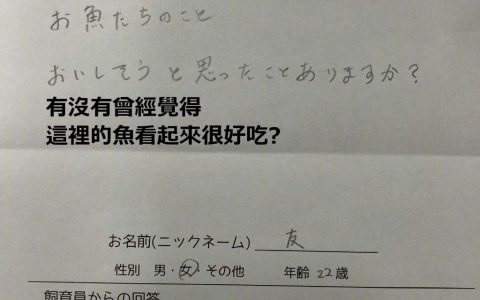 お魚たちのこと
おいしそうと思ったことありますか？
有沒有曾經覺得
這裡的魚看起來很好吃?
お名前(ニックネーム) 友
性別 男・女・その他 年齢 22歳
飼育員からの回答